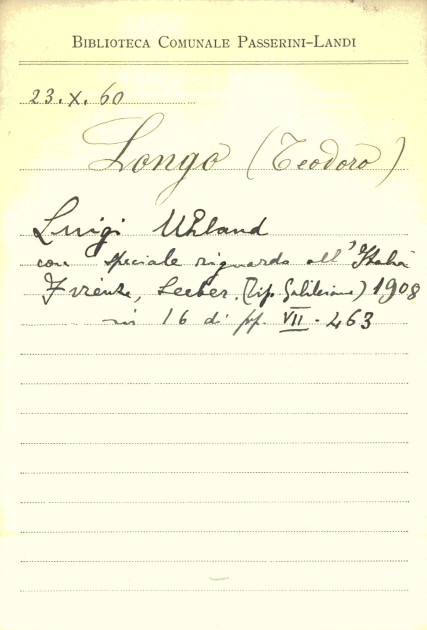 BIBLIOTECA COMUNALE PASSERINI-LANDI
23.X.60
Longo (Teodoro)
Luigi Uhland
con speciale riguardo all'Italia
Firenze, Seeber. (Tip. Galileiana) 1908
in 16 di pp. VII-463